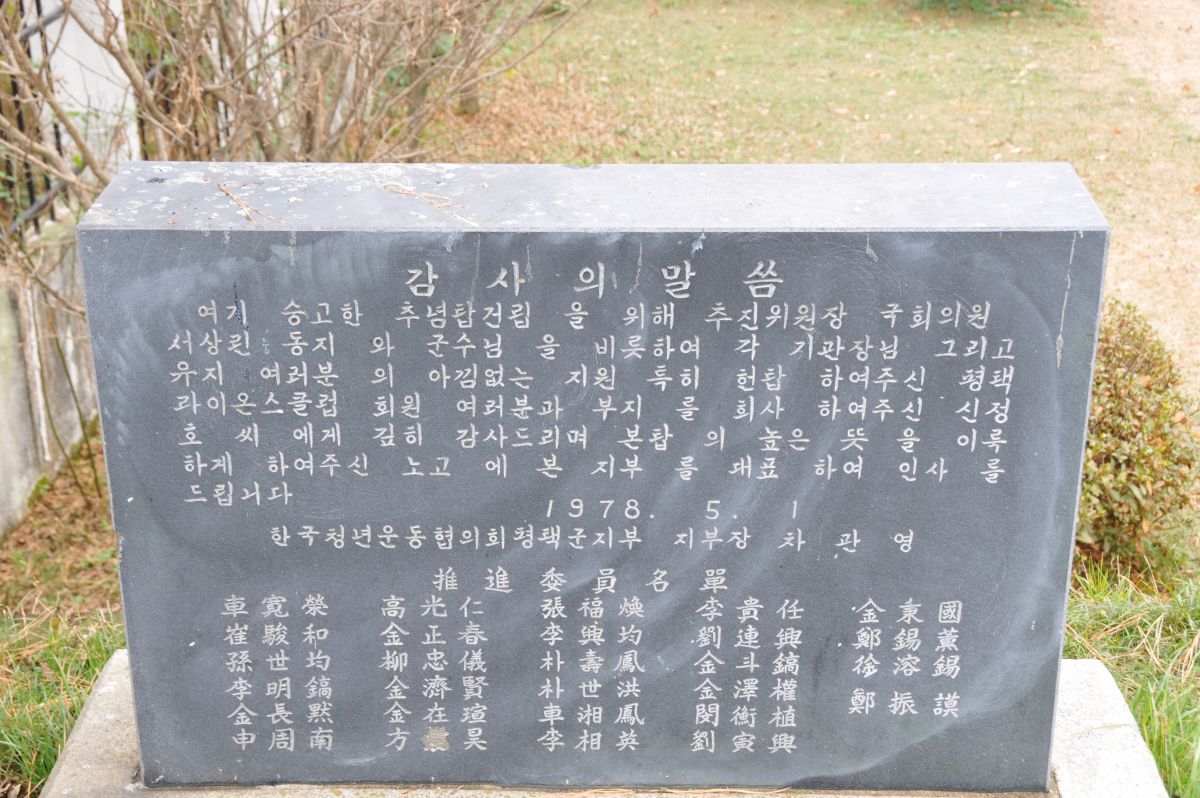 감사의말씀
여기 숭고한 추념탑건립 을 위해 추진위원장 국회의원
서상린 동지 와 군수님 을 비롯하여 각 기관장님 그리고
유지 여러분 의 아낌없는 지원 특히 헌탑 하여주신 평택
라이온스클럽 회원 여러분과 부지 를 희사 하여주신 신정
호 씨 에게 깊히 감사드리며 본탑 의 높은 뜻 을 이룩
하게 하여주신 노고 에 본 지부 를 대표 하여 인사 를
드립니다
1978. 5. 1
한국청년운동협의회평택군지부 지부장 차 관 영
推進委員名單
車寛榮 高光仁 張福煥 李貴任 金秉國
崔駿和 金正春 李興均 劉連興 鄭錫薰
孫世均 柳忠儀 朴壽鳳 金斗鎬 徐溶錫
李明鎬 金濟賢 朴世洪 金澤權 鄭振謨
金長黙 金在瑄 車湘鳳 閔衡植
申周南 方 昊 李相英 劉寅興